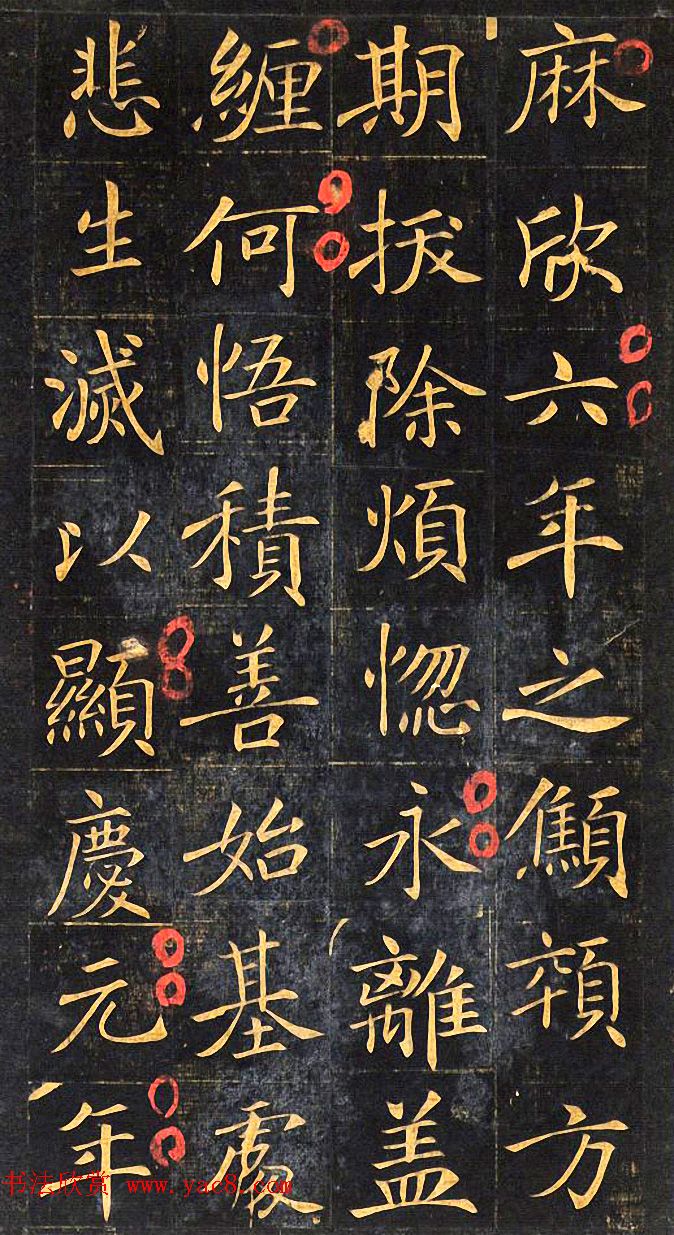 麻欣六年之顦顇方
期拔除煩惚永離盖
纏何悟積善始基處
悲生滅以顯慶元年
书法欣赏 www.yac8.com